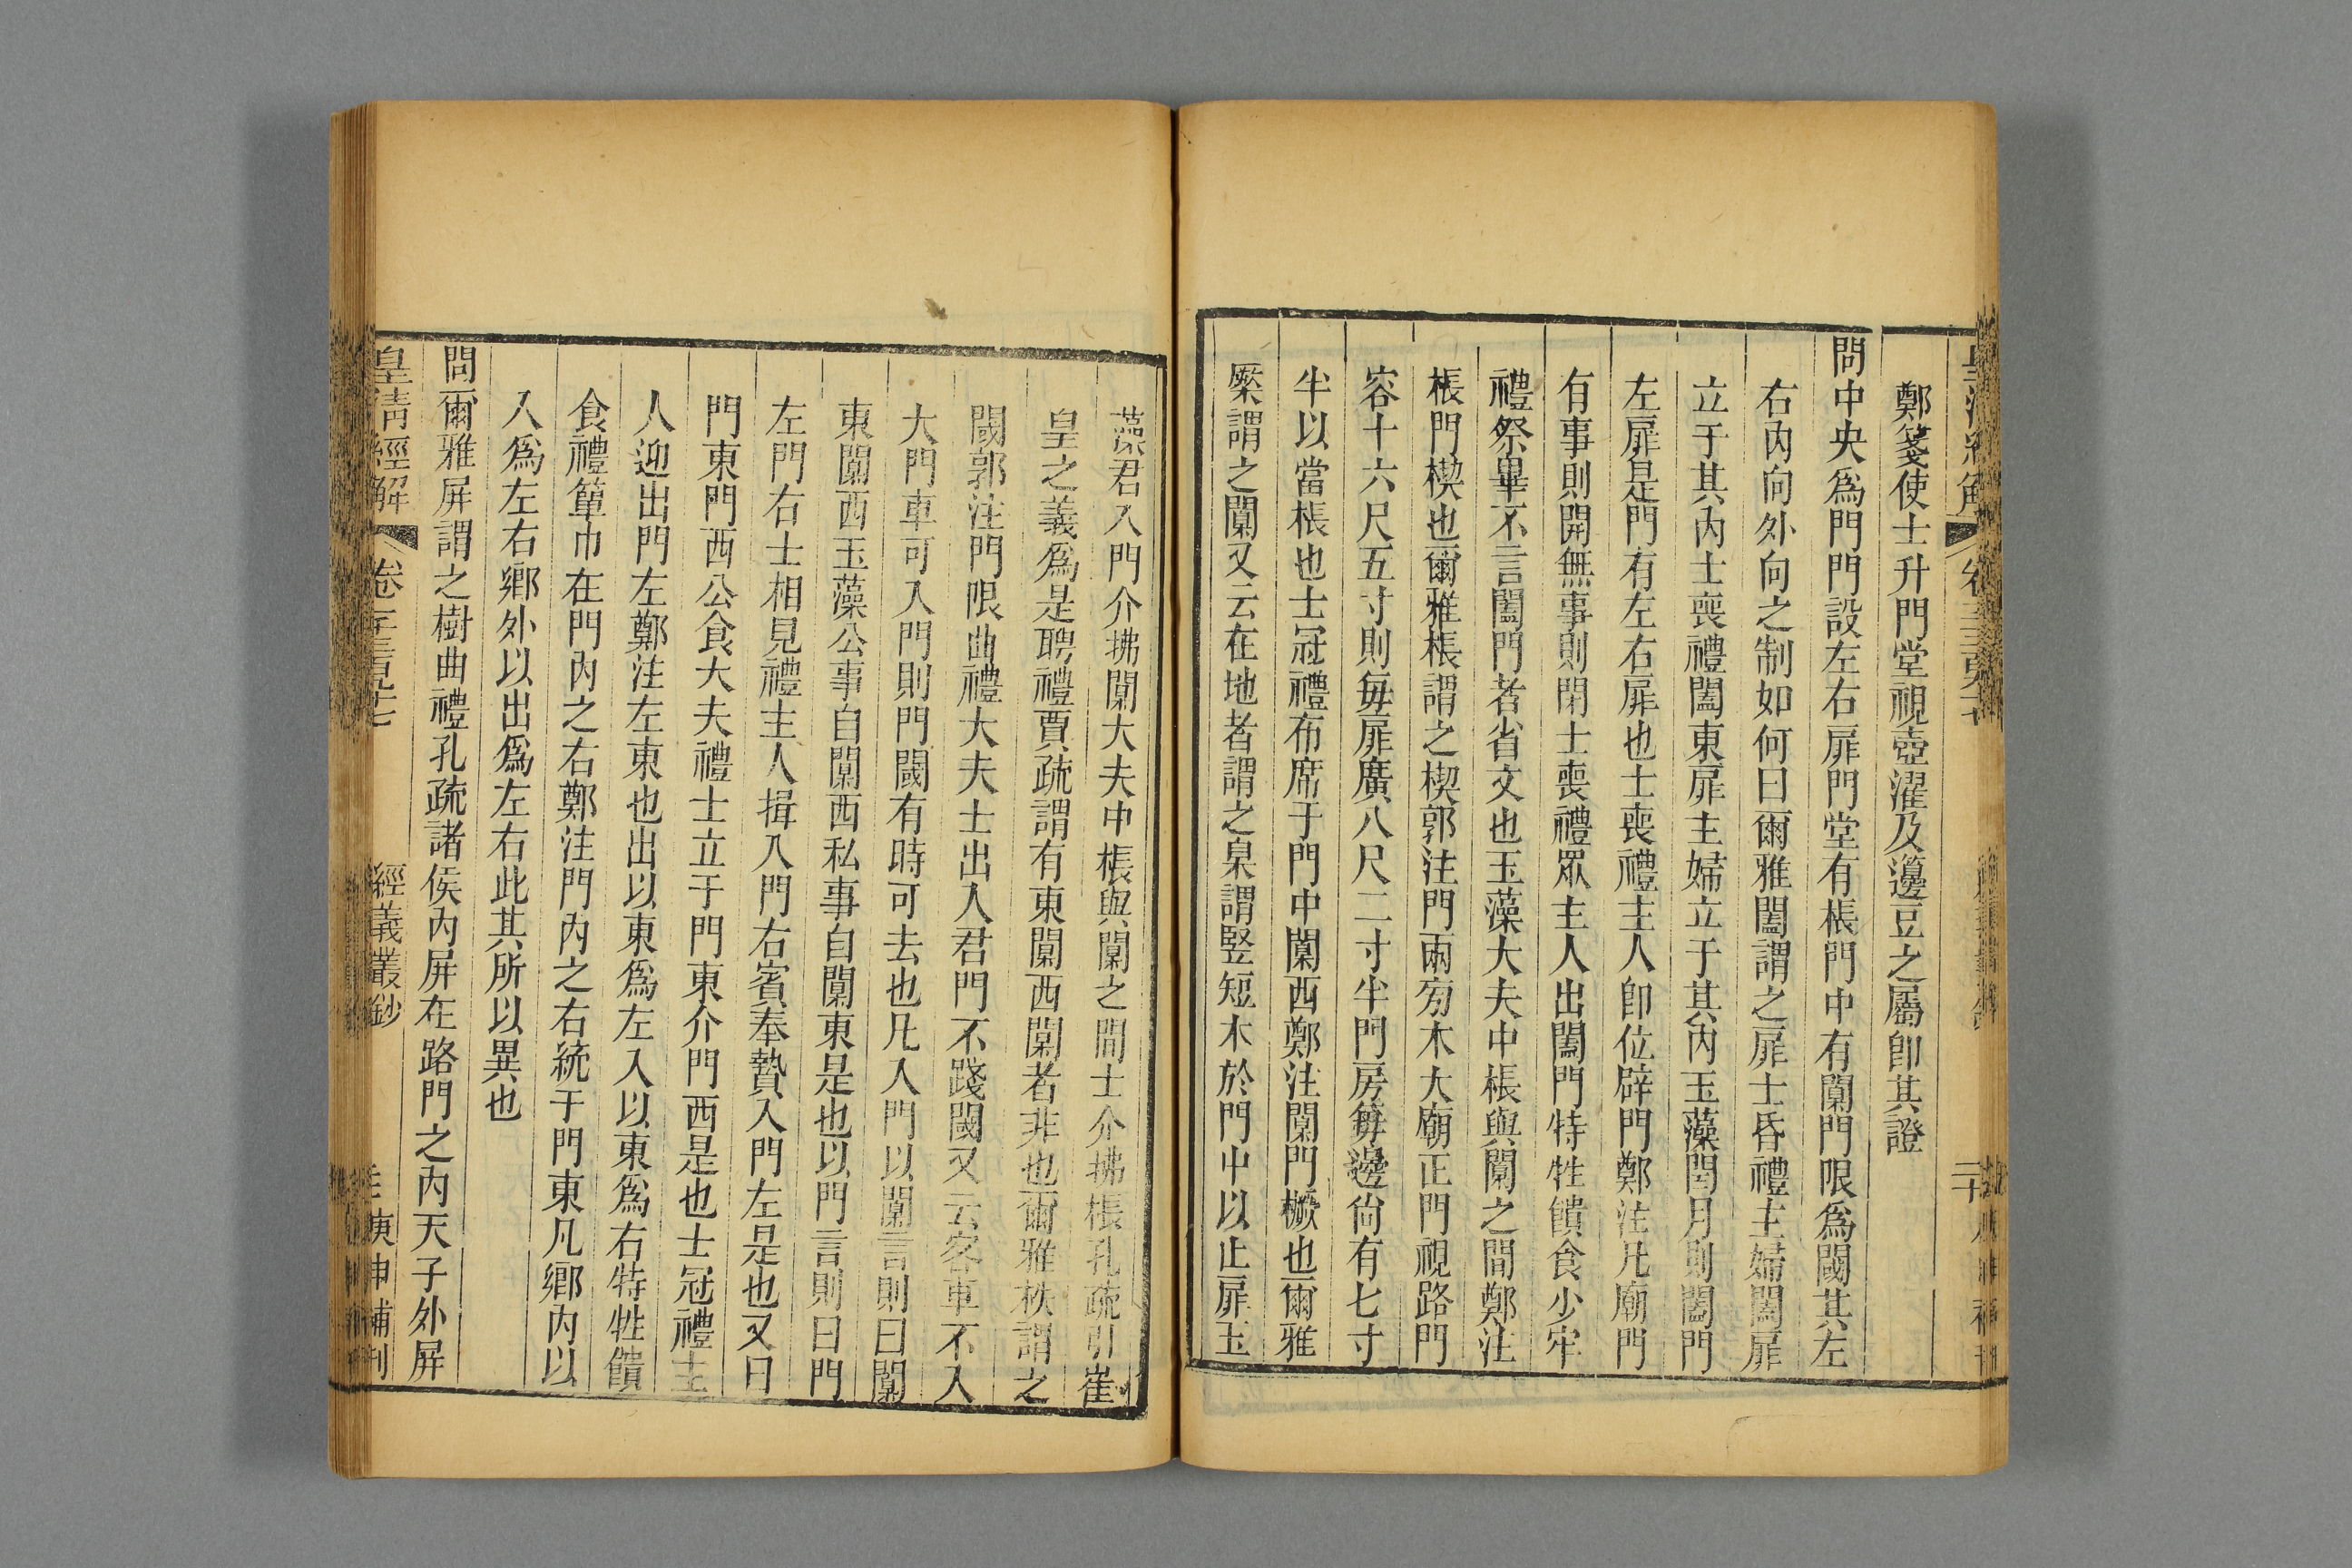 鄭箋使士升門堂視壺濯及籩豆之屬卽其證
問中央爲門門設左右扉門堂有棖門中有闑門限爲閾其左
右內向外向之制如何曰爾雅闔謂之扉士昏禮主婦闔扉
立于其內士喪禮闔東扉主婦立于其內玉藻閏月則闔門
左扉是門有左右扉也士喪禮主人卽位辟門鄭注凡廟門
有事則開無事則閉士喪禮眾主人出闔門特牲饋食少牢
禮祭畢不言闔門者省文也玉藻大夫中棖與闑之閒鄭注
棖門楔也爾雅棖謂之楔郭注門兩旁木大廟正門視路門
容十六尺五寸則每扉廣八尺二寸半門房筭邊尙有七寸
半以當棖也士冠禮布席于門中闑西鄭注闑門橛也爾雅
橜謂之闑又云在地者謂之臬謂竪短木於門中以止扉玉
藻君入門介拂闑大夫中棖與闑之閒士介拂棖孔疏引崔
皇之義爲是聘禮賈疏謂有東闑西闑者非也爾雅柣謂之
閾郭注門限曲禮大夫士出入君門不踐閾又云客車不入
大門車可入門則門閾有時可去也凡入門以闑言則曰闑
東闑西玉藻公事自闑西私事自闑東是也以門言則曰門
左門右士相見禮主人揖入門右賓奉贄入門左是也又曰
門東門西公食大夫禮士立于門東介門西是也士冠禮主
人迎出門左鄭注左東也出以東爲左入以東爲右特牲饋
食禮簞巾在門內之右鄭注門內之右統于門東凡鄉內以
入爲左右鄉外以出爲左右此其所以異也
問爾雅屏謂之樹曲禮孔疏諸侯內屏在路門之內天子外屏
皇清經解
經義叢鈔
庚申補刊